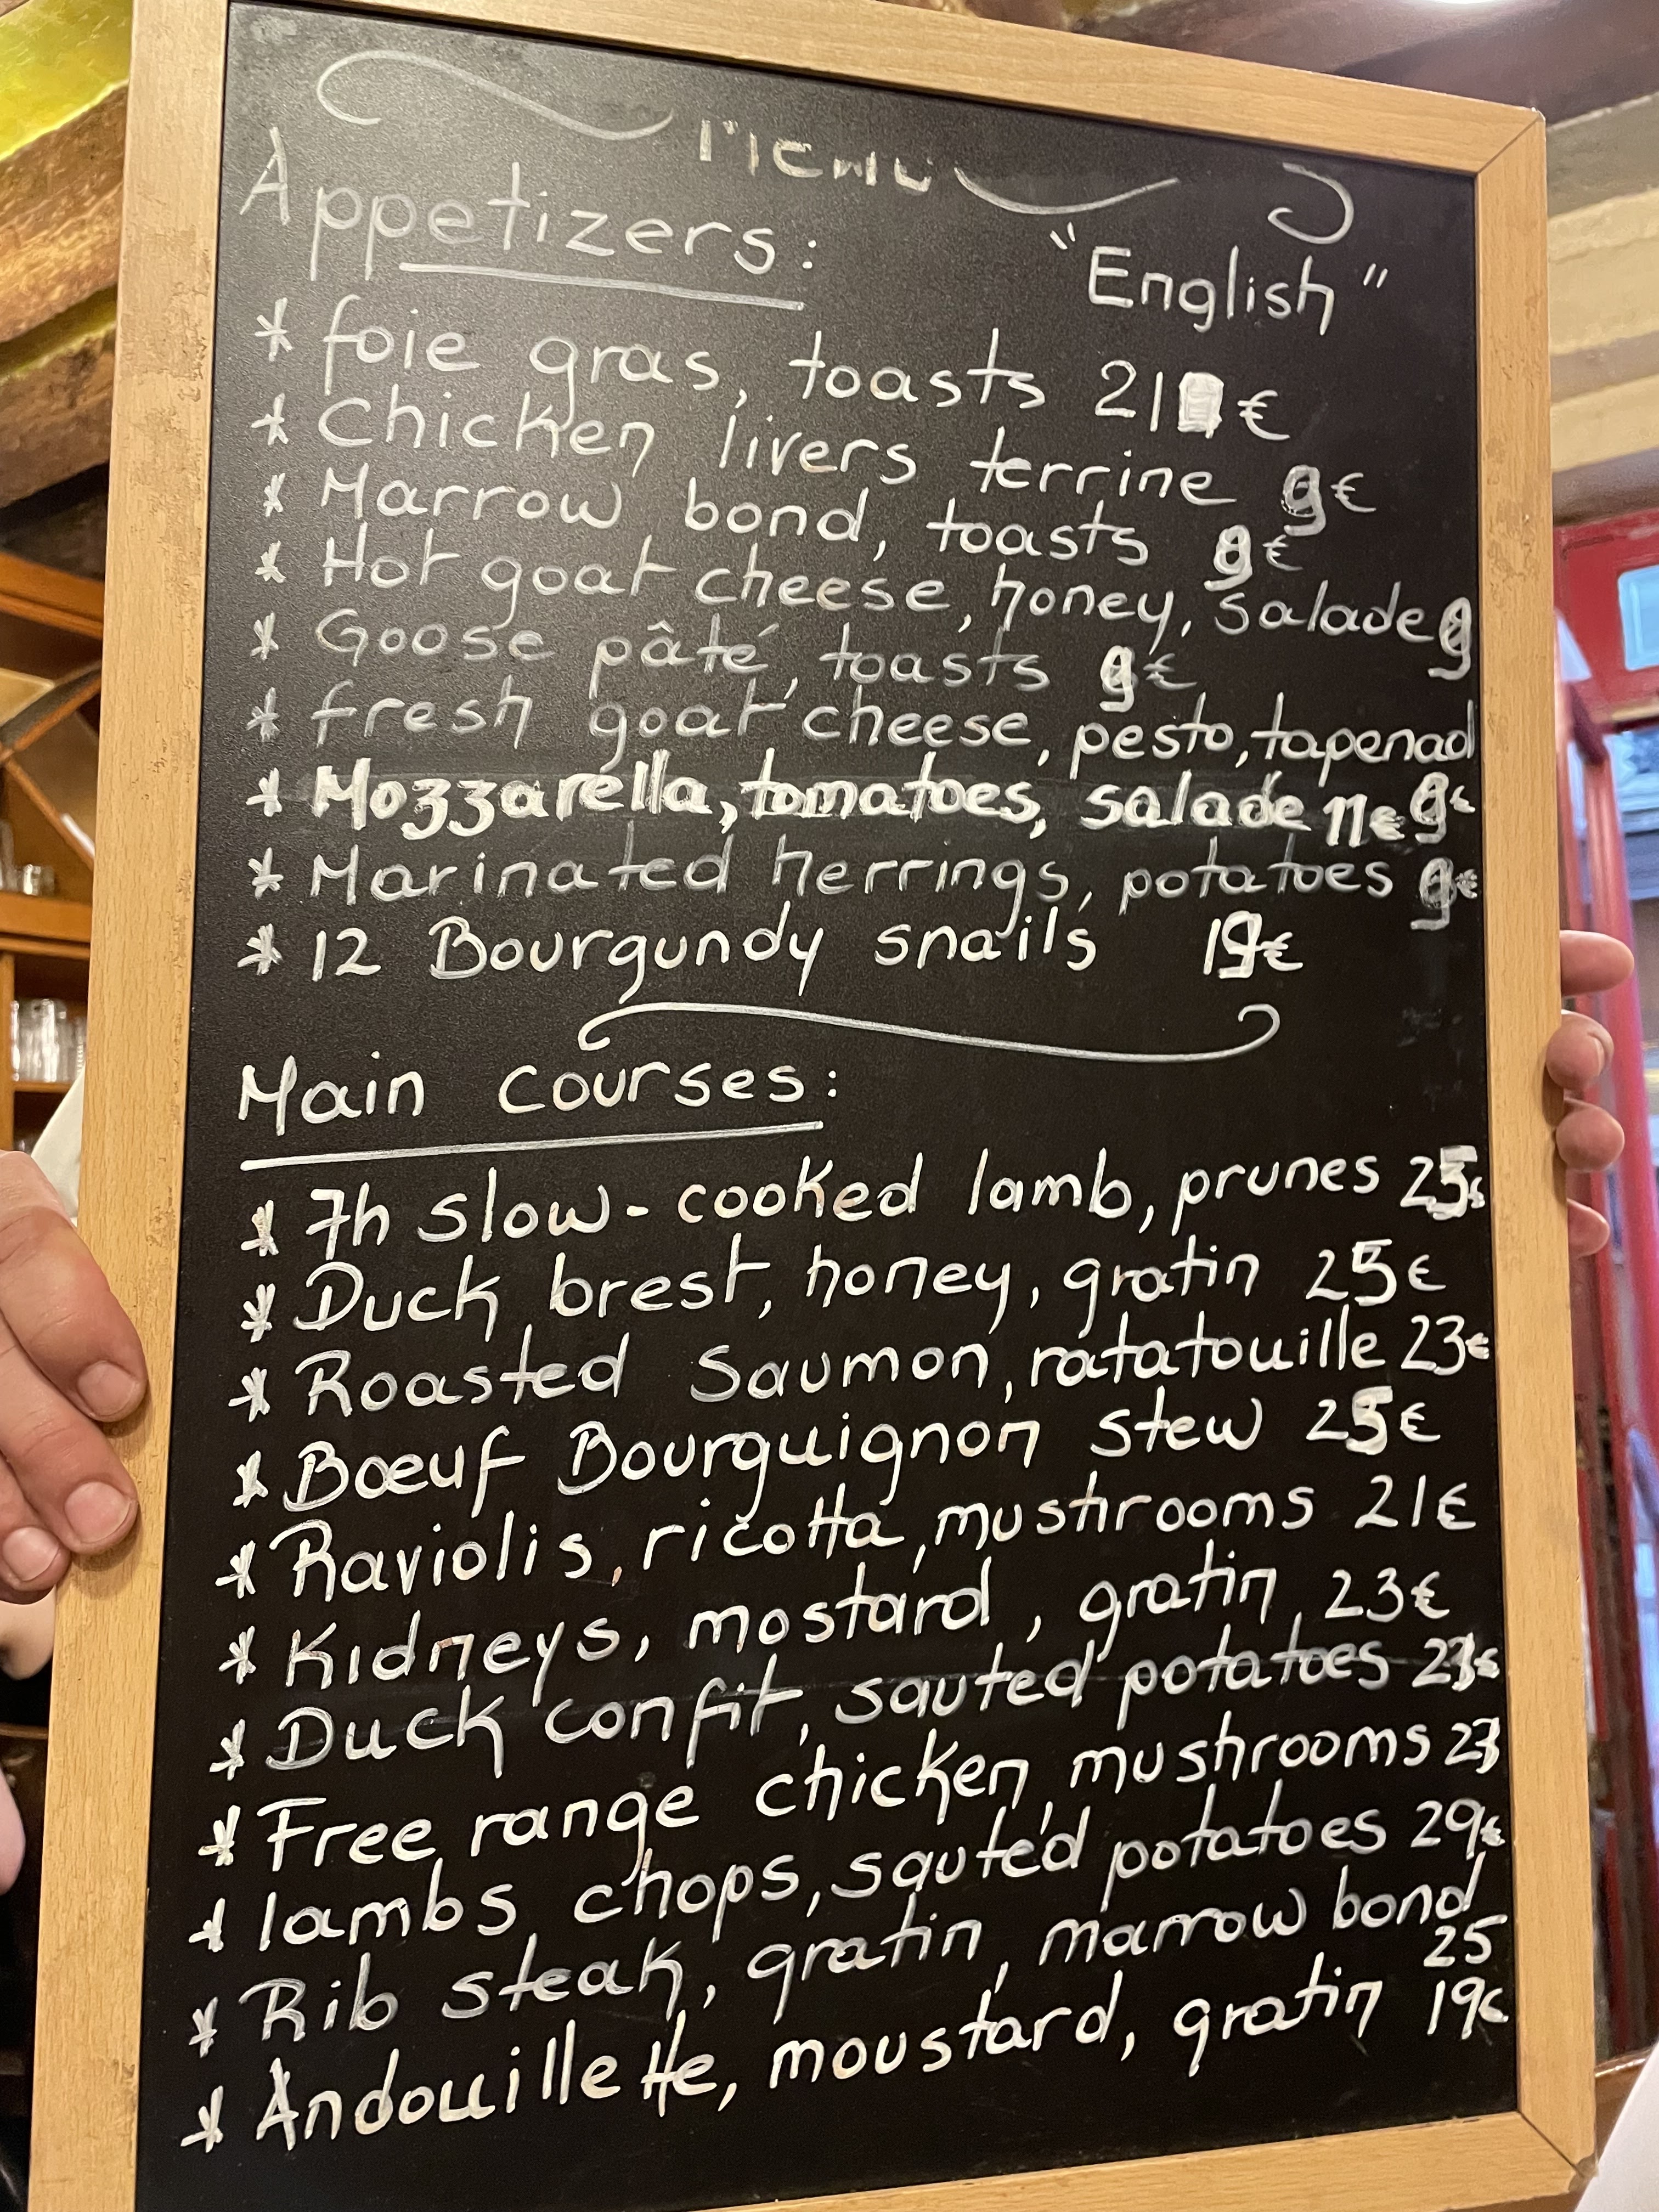 Menu
Appetizers:
"English"
* foie gras, toasts 21 €
* Chicken livers terrine 9€
* Marrow bond, toasts 9€
* Hot goat cheese, honey, salade 9
* Goose pâté, toasts 9€
* fresh goat cheese, pesto, tapenad
* Mozzarella, tomatoes, salade 11€ 9€
* Marinated herrings, potatoes 9€
* 12 Bourgundy snails 19€
Main courses:
* 7h slow-cooked lamb, prunes 25€
* Duck brest, honey, gratin 25€
* Roasted Saumon, ratatouille 23€
* Bœuf Bourguignon stew 25€
* Raviolis, ricotta, mushrooms 21€
* Kidneys, mostard, gratin, 23€
* Duck confit, sauted potatoes
* Free range chicken, mushrooms
* lambs chops, sauted potatoes 29€
* Rib steak, gratin, marrow bond
25
* Andouillette, moustard, gratin 19€